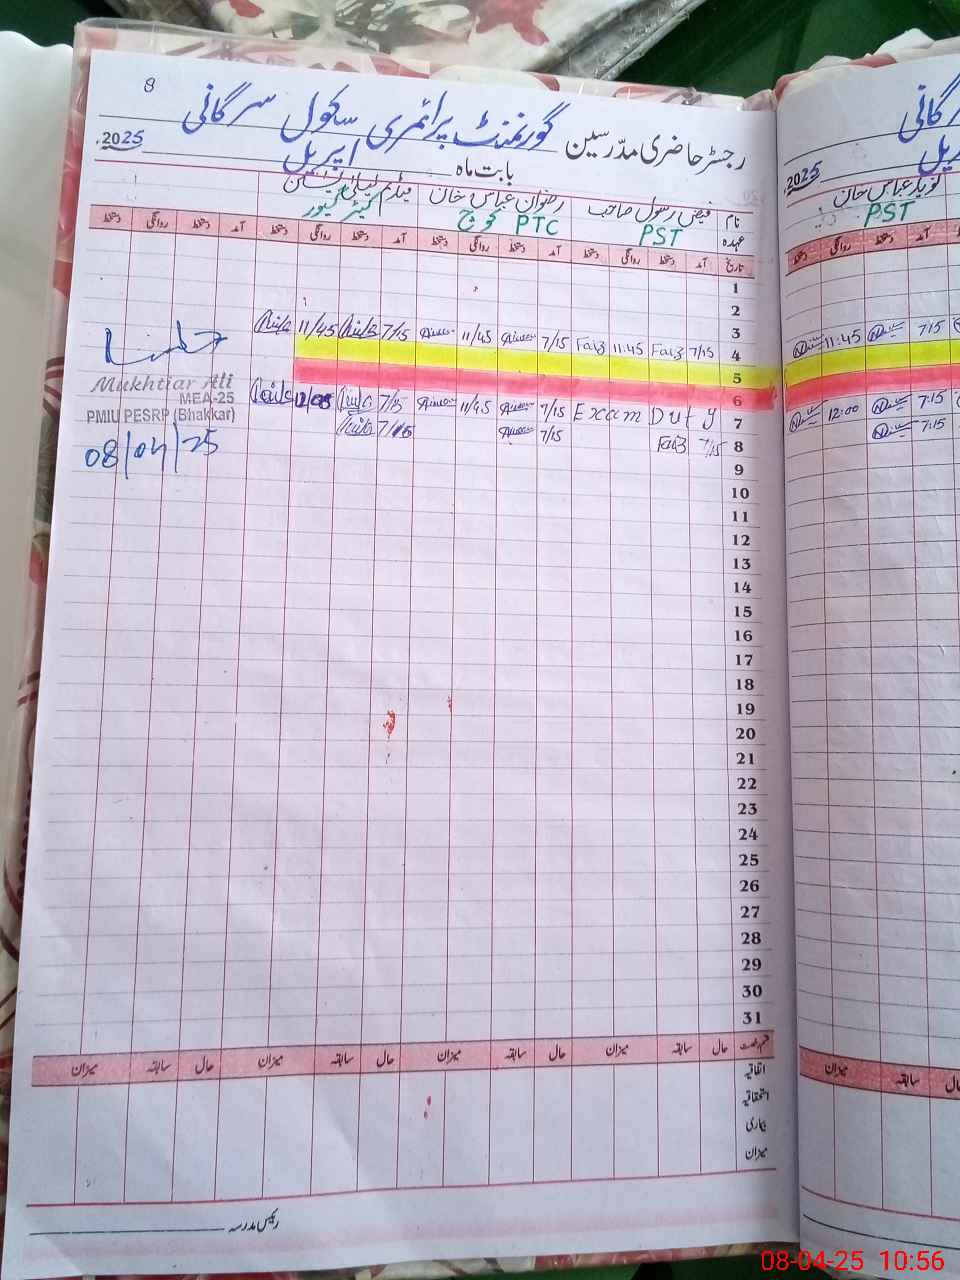 8
رجسٹر حاضری مدرسین گورنمنٹ پرائمری سکول سرگانی
بابت ماہ اپریل 2025
نام فیض رسول صاحب رضوان عباس خان میڈم
عہدہ PST PTC کوچ کیئر گیور
تاریخ آمد دستخط روانگی دستخط آمد دستخط روانگی دستخط آمد دستخط روانگی دستخط آمد دستخط روانگی دستخط
1
2
3
4 7/15 Faiz 11:45 Faiz 7/15 11/45 7/15 11/45
5
6
7 Exam Duty 7/15 11/45 7/15
8 7/15 Faiz 7/15 7/15
9
10
11
12
13
14
15
16
17
18
19
20
21
22
23
24
25
26
27
28
29
30
31
Mukhtiar Ali
MEA-25
PMIU PESRP (Bhakkar)
08/04/25
قسم رخصت حال سابقہ میزان حال سابقہ میزان حال سابقہ میزان حال سابقہ میزان
اتفاقیہ
استحقاقیہ
بیماری
میزان
رئیس مدرسہ
سرگانی
اپریل
2025
نوید عباس خان
PST
دستخط روانگی دستخط آمد
11:45 7:15
12:00 7:15
7:15
میزان سابقہ حال
08-04-25 10:56